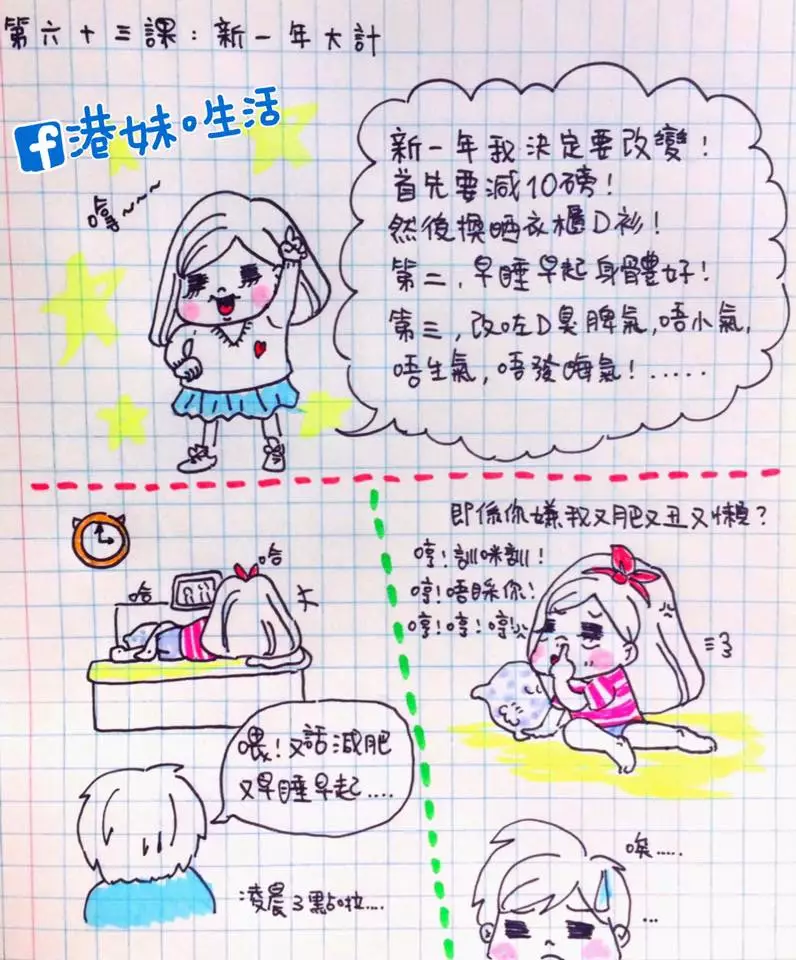 第六十三課:新一年大計
港妹の生活
新一年我決定要改變!
首先要減10磅!
然後換晒衣櫃D衫!
第二,早睡早起身體好!
第三,改咗D臭脾氣,唔小氣,
唔生氣,唔發晦氣!.....
哈
哈
喂!又話減肥
又早睡早起....
凌晨3點啦....
即係你嫌我又肥又丑又懶?
哼!訓咪訓!
哼!唔睬你!
哼!哼!哼!
唉.....
...